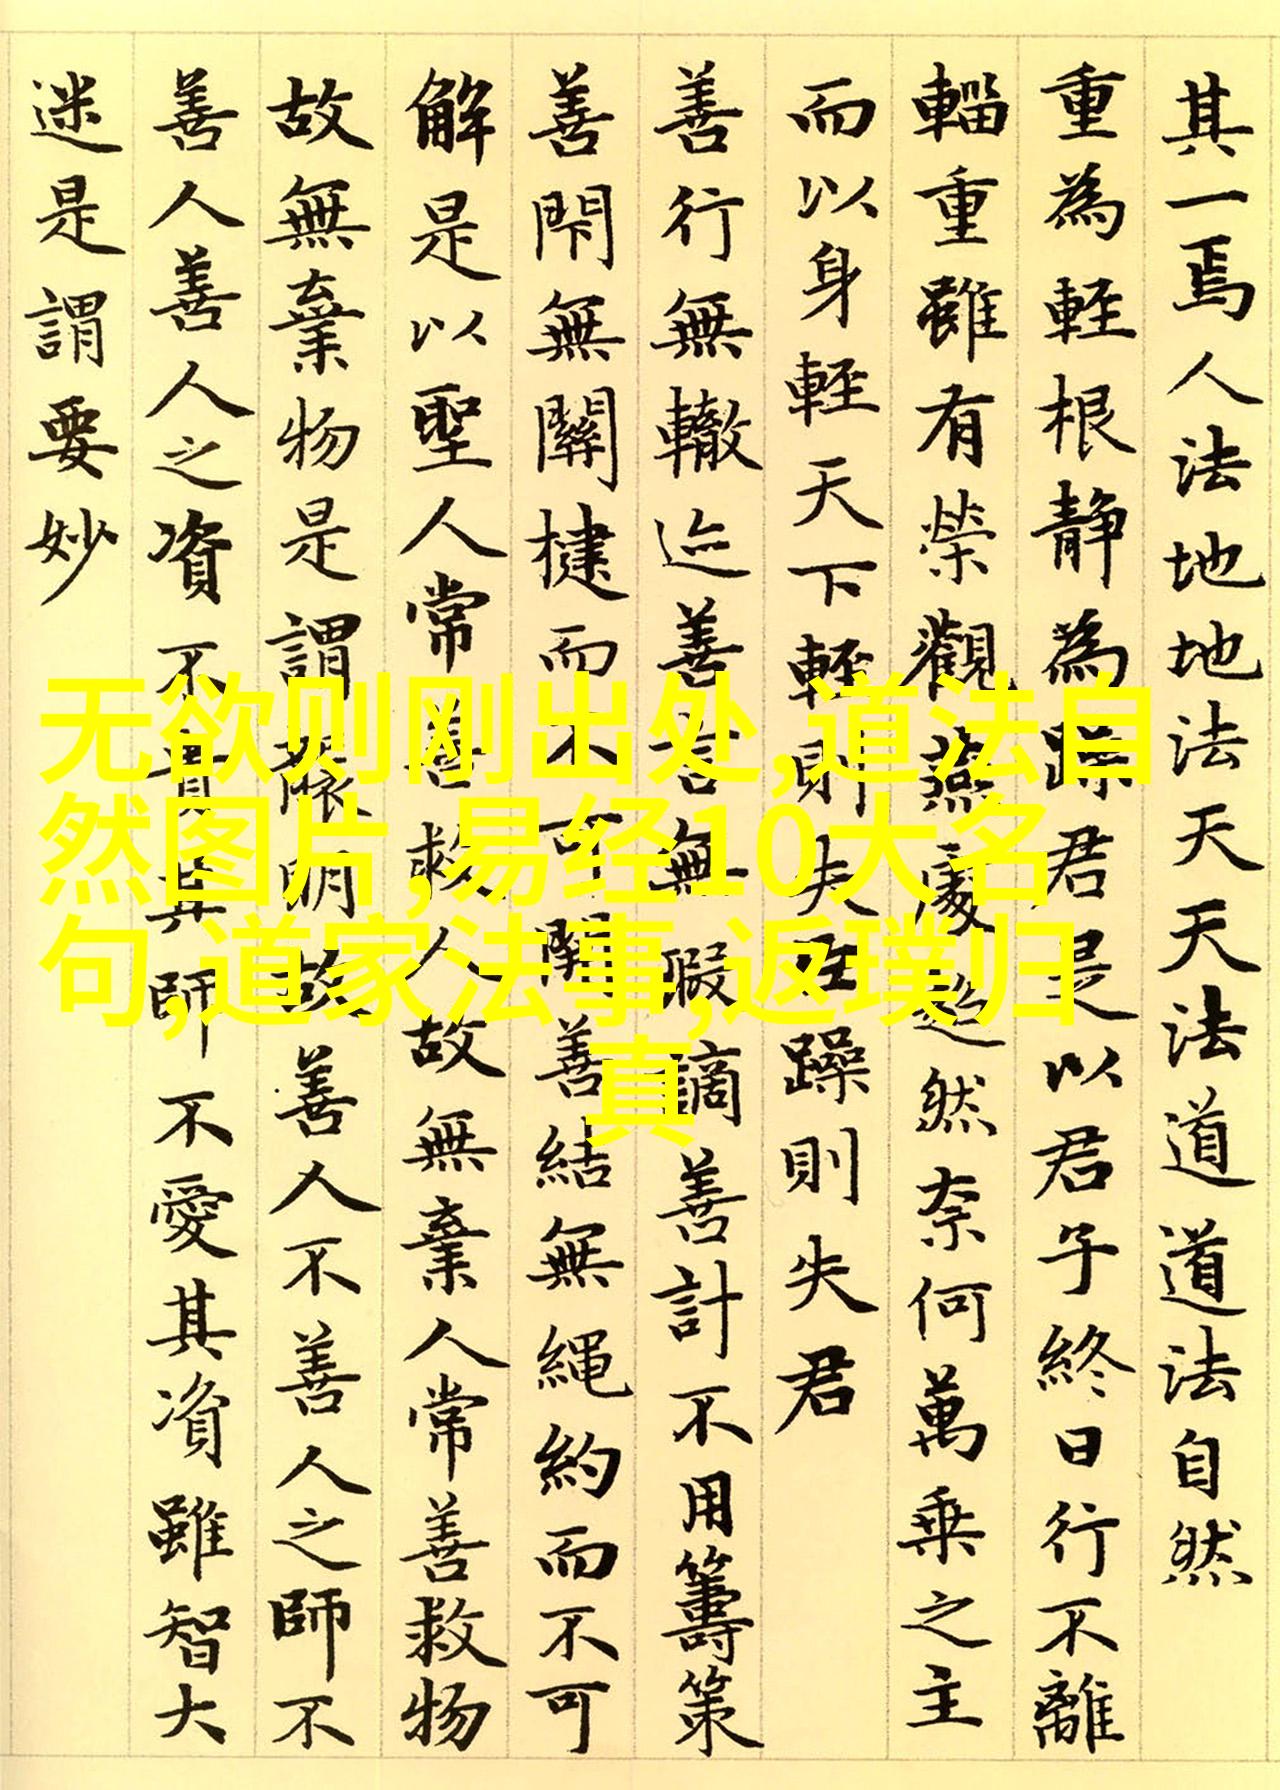 其一焉人法地地法天天法道道法自然
重為輕根靜為躁君是以君子終日行不離
輜重雖有榮觀燕處超然奈何萬乘之主
而以身輕天下輕則失臣躁則失君
善行無轍迹善言無瑕謫善計不用籌策
善閇無關楗而不可開善結無繩約而不可
解是以聖人常善救人故無棄人常善救物
故無棄物是謂襲明故善人不善人之師不
善人善人之資不貴其師不愛其資雖智大
迷是謂要妙
无欲则刚出处,道法自
然图片,易经10大名
句,道家法事,返璞归
真